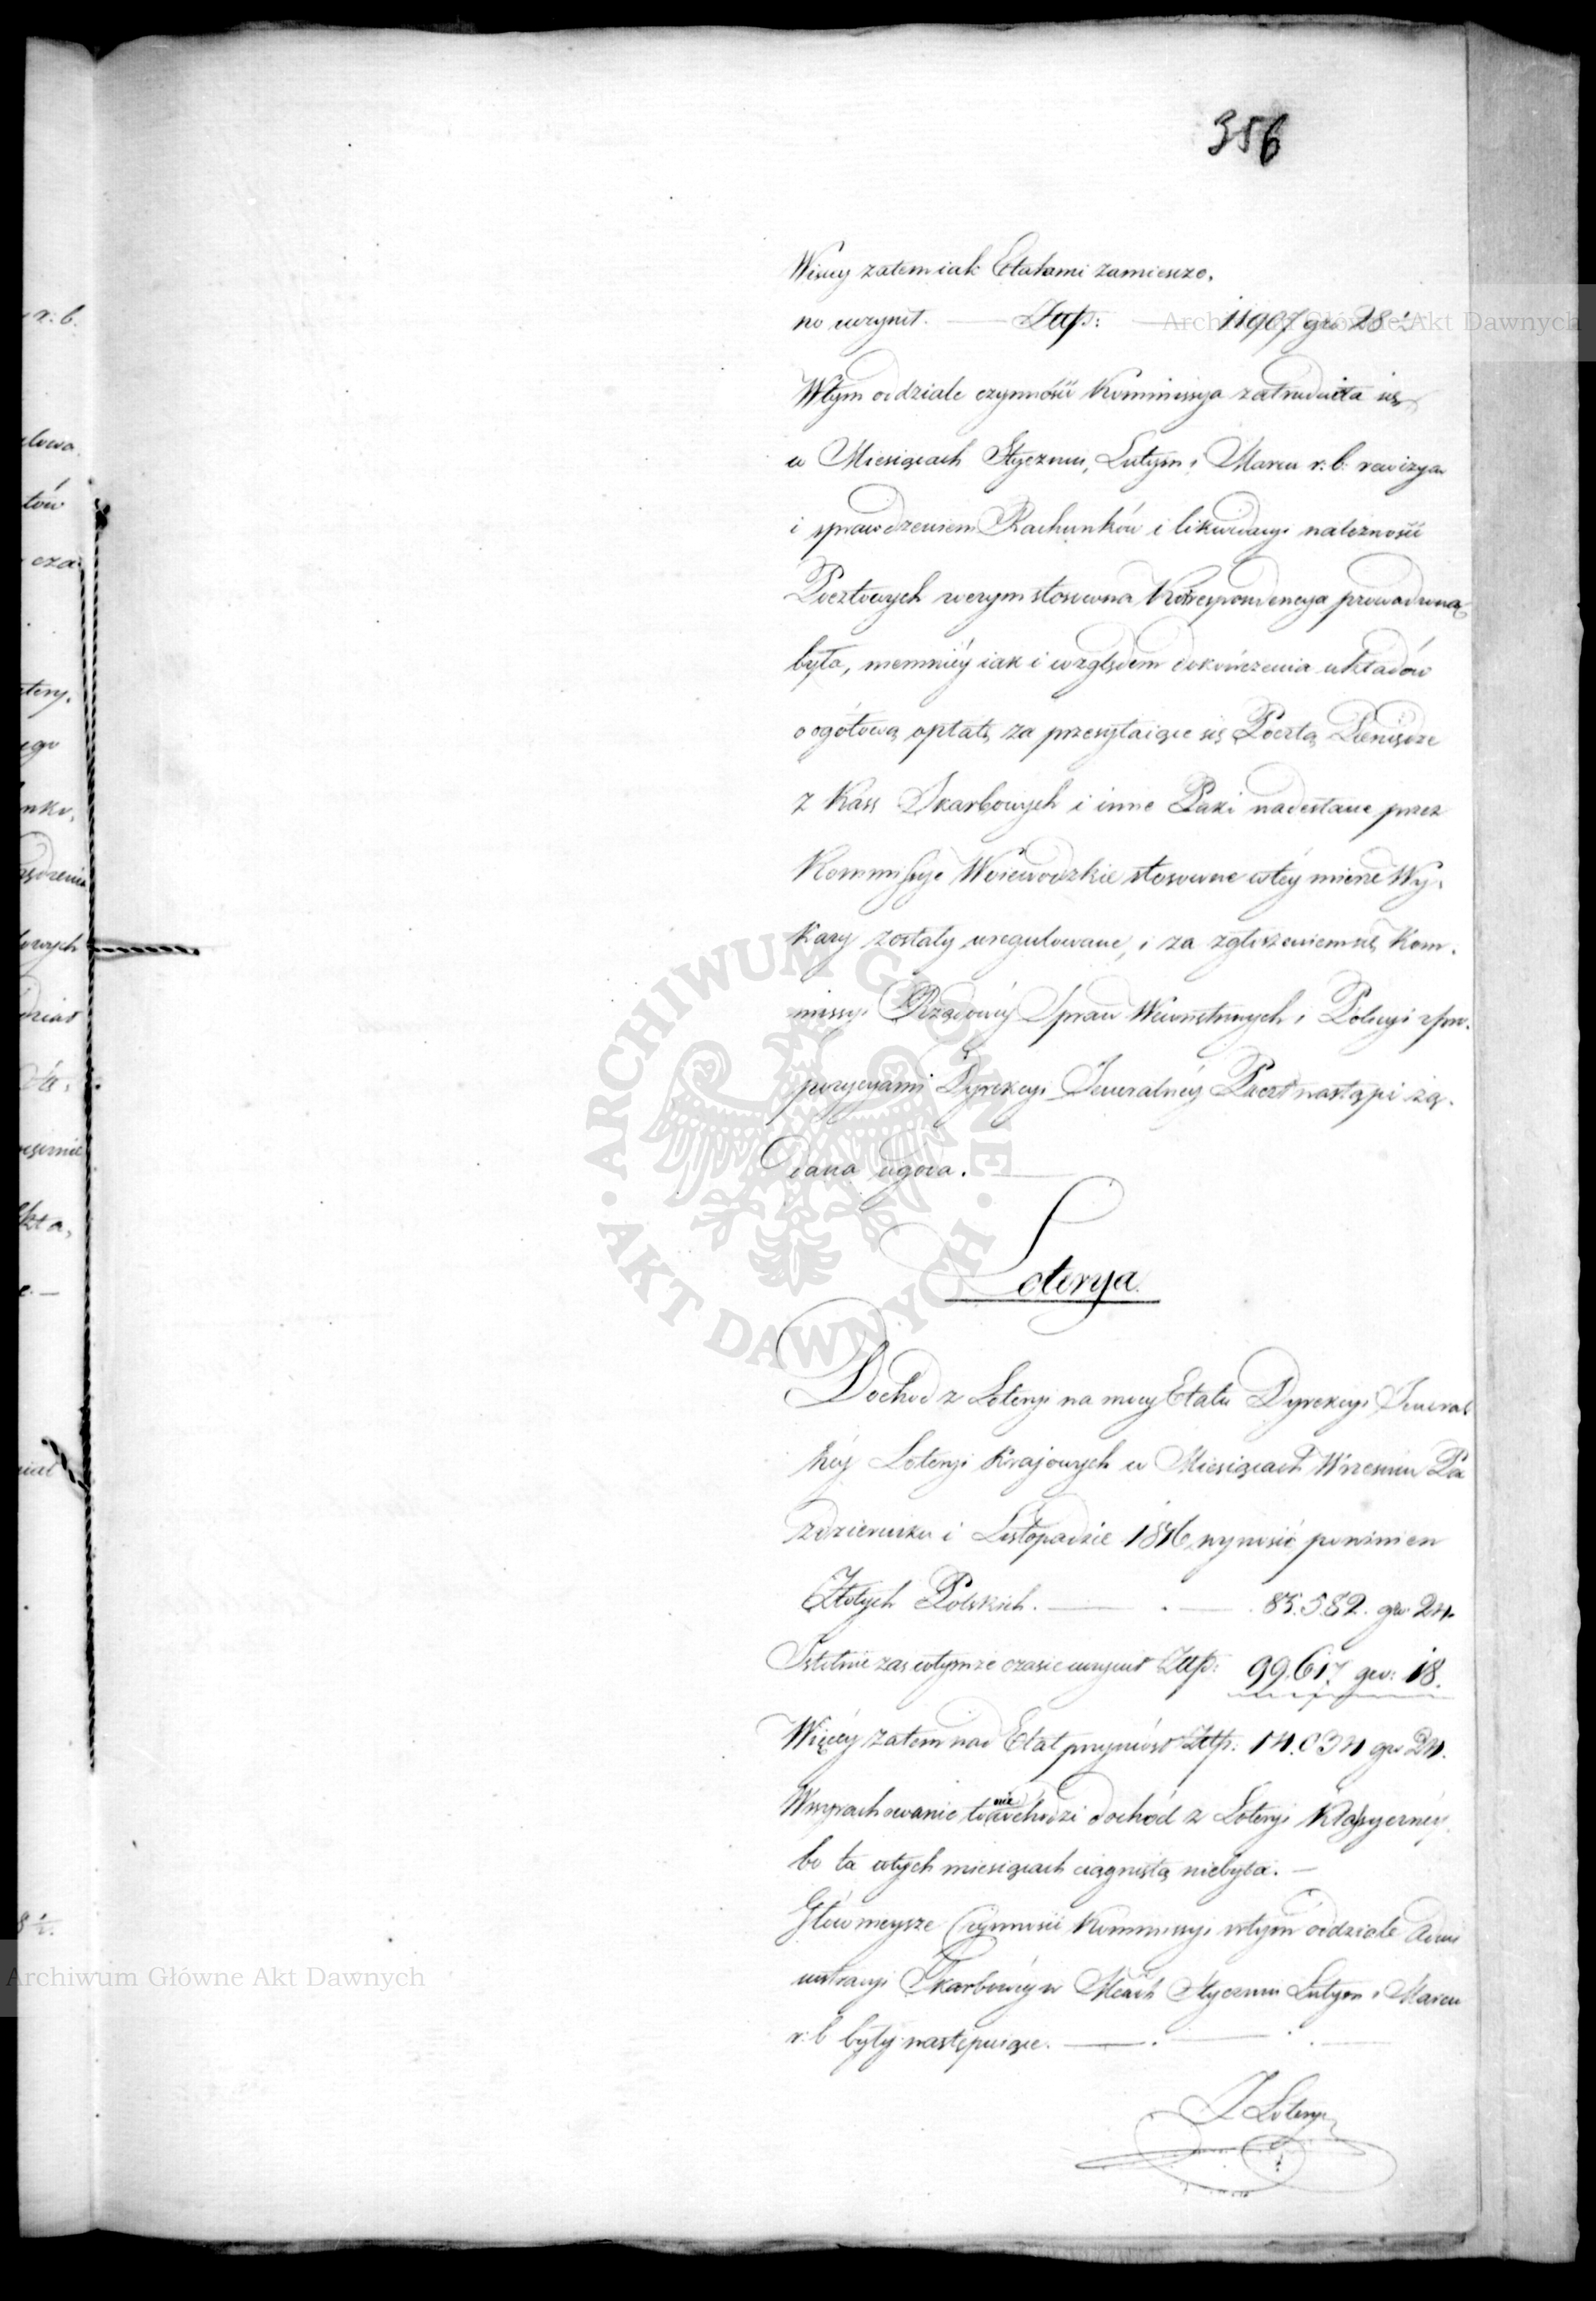 356
Więcy zatem iak Etatami zamieszczo.
no uczynił. — Złtp: — 11907 gr 28 ½
Wtym oddziale czynności Kommissya zatrudniła się
w Miesiącach Styczniu, Lutym i Marcu r: b: rewizya
i sprawdzeniem Rachunków i likwidacyi należności
Pocztowych w czym stosowna Korrespondencya prowadzoną
była, niemniéy iak i względem dokończenia układów
o ogółową opłatę za przesyłaiące się Pocztą Pieniądze
z Kass Skarbowych i inne Paki nadesłane przez
Kommissye Woiewodzkie stosowne wtéy mierze Wy.
kazy zostały uregulowane, i za zgłoszeniem się Kom.
missyi Rządowéy Spraw Wewnętrznych i Policyi z pro.
pozycyami Dyrekcyi Jeneralnéy Poczt nastąpi żą.
dana ugoda. —
Loterya.
Dochod z Loteryi na mocy Etatu Dyrekcyi Jeneral
néy Loteryi Krajowych w Miesiącach Wrześniu Pa
ździerniku i Listopadzie 1816 wynosić powinien
Złotych Polskich. — . — . 85.582. gr 24.
Istotnie zaś wtymże czasie uczynił Złtp: 99.617 gr: 18.
Więcéy zatem nad Etat przyniósł Złtp: 14.034 gr 24.
W wyrachowanie to nie wchodzi dochód z Loteryi Klassyczney,
bo ta wtych miesiącach ciągnięta niebyła. —
Główneysze Czynności Kommissyi wtym oddziale Admi
nistracyi Skarbowéy w Mcach Styczniu Lutym i Marcu
r: b były następuiące. — . — . —
I Lotery
r: b.
towa.
tów
cza
tery.
ego
nku,
ądzenia
owych
dział
kta,
8 ½.
Archiwum Główne Akt Dawnych
ARCHIWUM GŁÓWNE · AKT DAWNYCH ·
Archiwum Główne Akt Dawnych